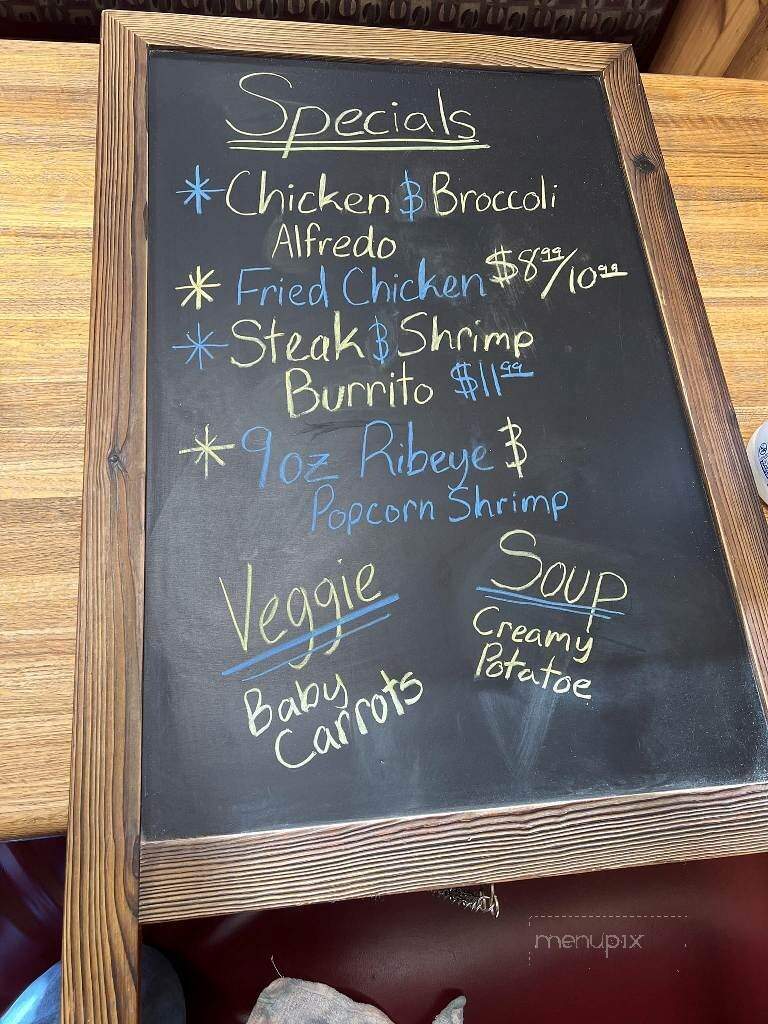 Specials
* Chicken & Broccoli
Alfredo
* Fried Chicken $8.99/10.99
* Steak & Shrimp
Burrito $11.99
* 9oz Ribeye &
Popcorn Shrimp
Veggie
Baby
Carrots
Soup
Creamy
Potatoe
menupix